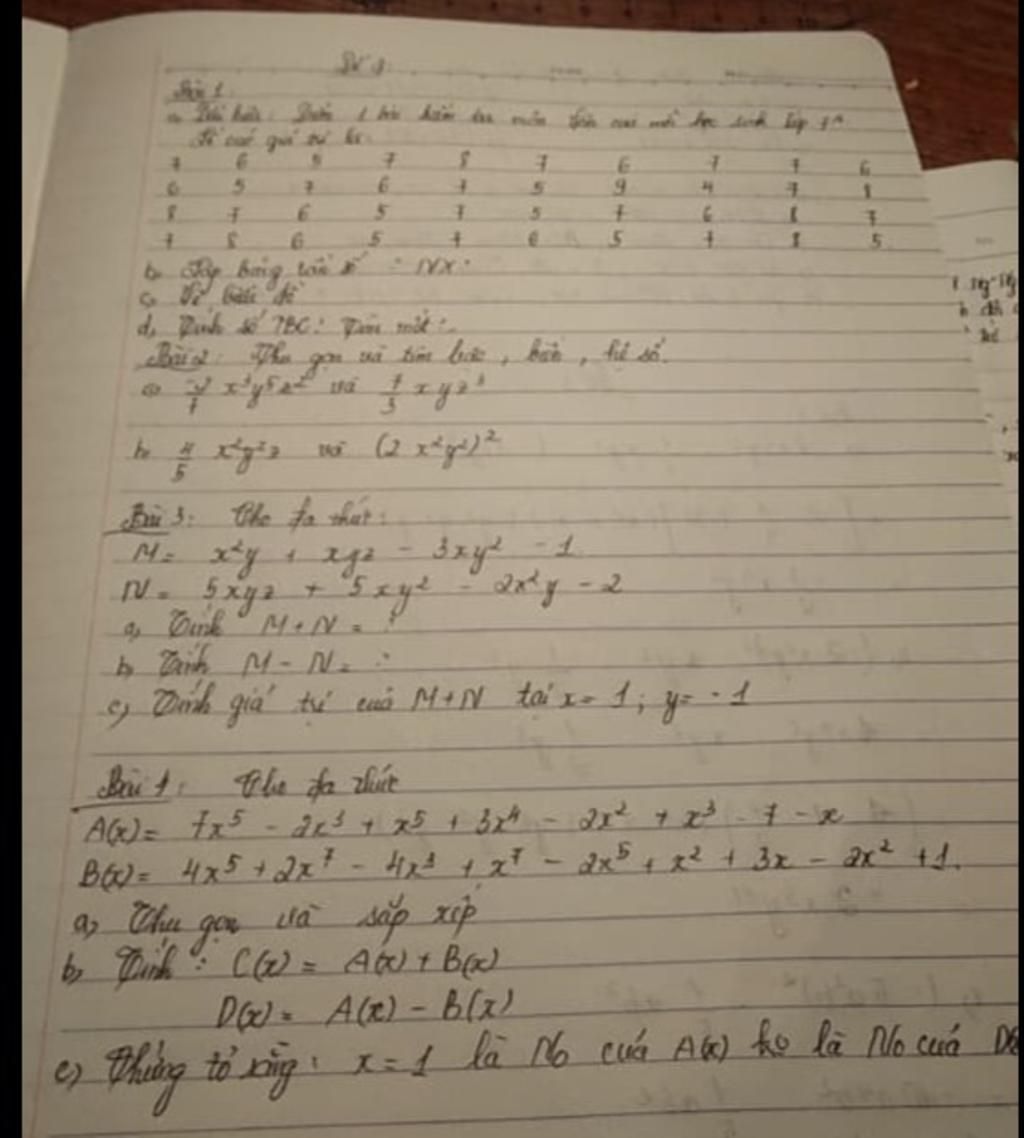 Bài 1:
a, Dấu hiệu: Điểm 1 bài kiểm tra môn Toán của mỗi học sinh lớp 7A.
Có giá trị là:
7 6 5 7 8 7 6 7 7 6
6 5 7 6 7 5 9 4 7 8
8 7 6 5 7 5 7 6 8 7
7 8 6 5 7 6 5 7 8 5
b, Lập bảng tần số NX.
c, Vẽ biểu đồ
d, Tính số TBC? Tìm mốt?
Bài 2: Thu gọn và tìm bậc, biến, hệ số.
a, x³y⁵z² và 7/3 xyz³
b, 4/5 x²y²z và (2x²y²)²
Bài 3: Cho đa thức:
M = x²y + xyz - 3xy² - 1
N = 5xyz + 5xy² - 2x²y - 2
a, Tính M + N = ?
b, Tính M - N = ?
c, Tính giá trị của M+N tại x = 1; y = -1
Bài 4: Cho đa thức
A(x) = 7x⁵ - 2x³ + x⁵ + 3x⁴ - 2x² + x³ - 7 - x
B(x) = 4x⁵ + 2x⁷ - 4x³ + x⁷ - 2x⁵ + x² + 3x - 2x² + 1.
a, Thu gọn và sắp xếp
b, Tính: C(x) = A(x) + B(x)
D(x) = A(x) - B(x)
c, Chứng tỏ rằng: x = 1 là No của A(x) ko là No của